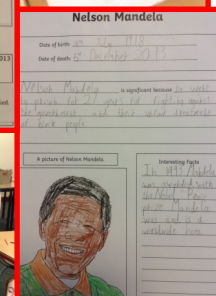 Nelson Mandela
Date of birth: 1918
Date of death: 5th December 2013
Nelson Mandela is significant because he went
to prison for 27 years for fighting against
the government and their treatment
of black people
A picture of Nelson Mandela.
Interesting facts
In 1993 Mandela
was awarded with
the Nobel Peace
prize. Mandela
was and is a
worldwide hero.
2013